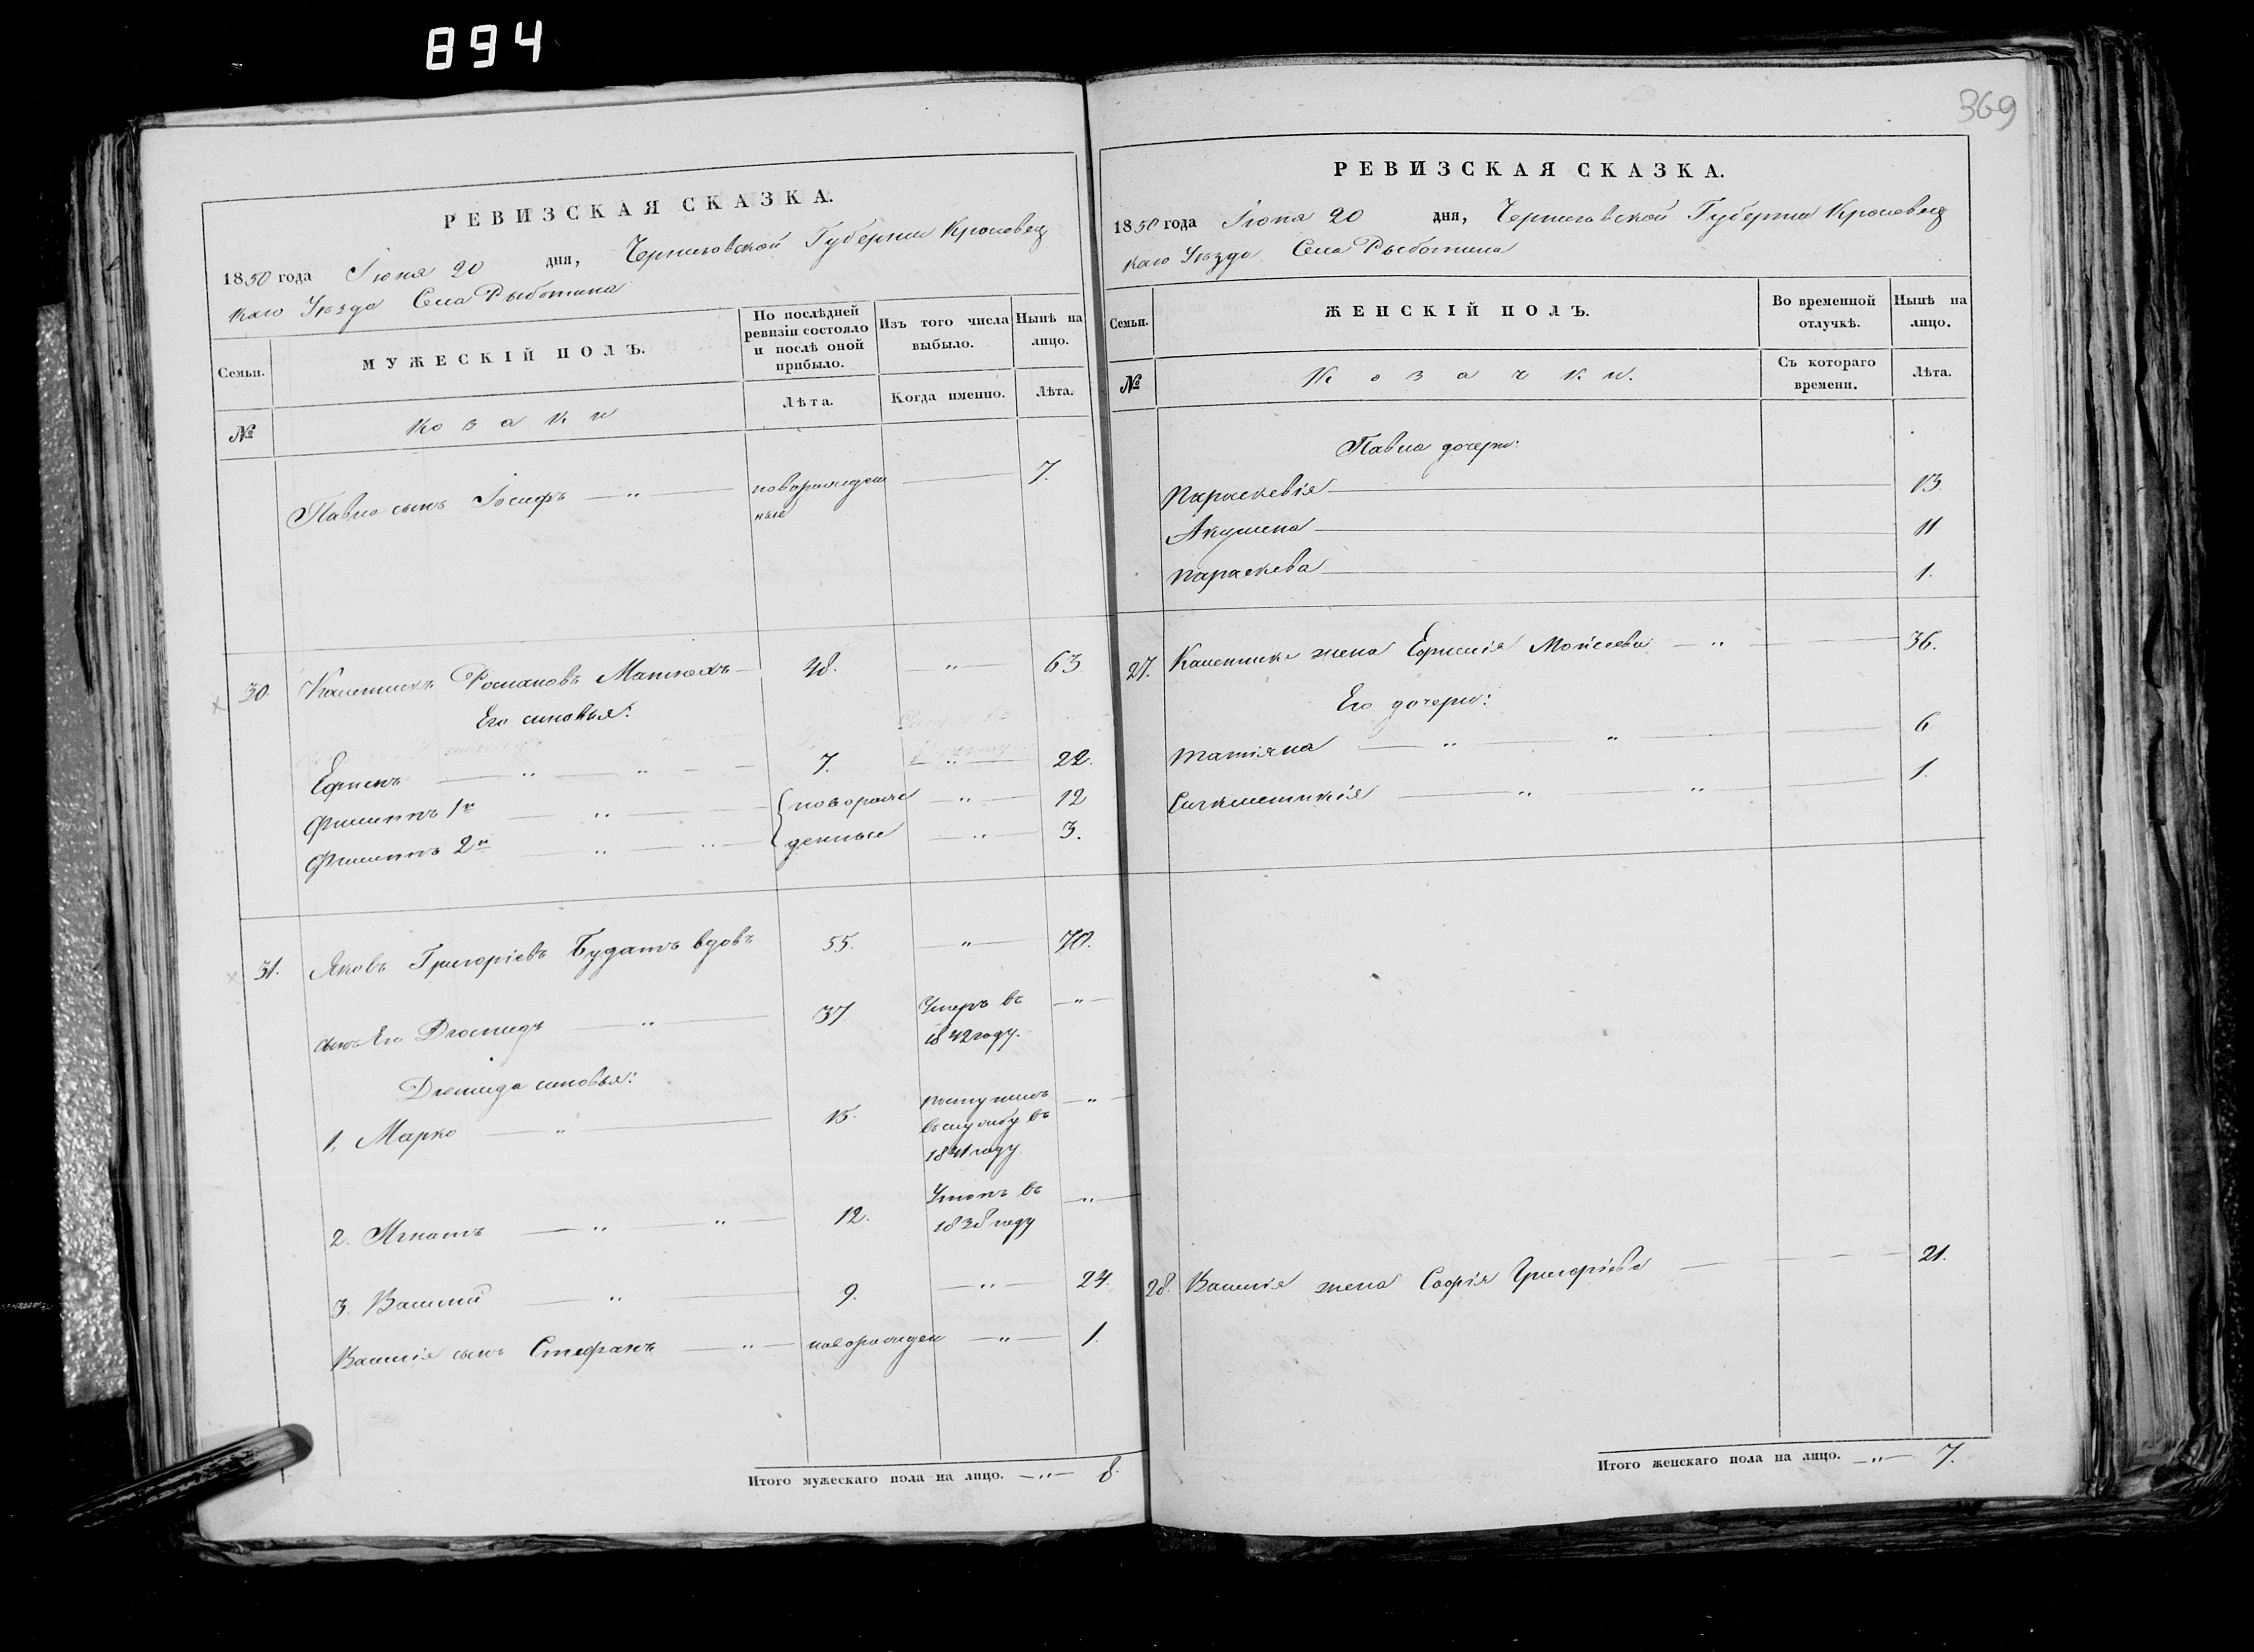 894
369
РЕВИЗСКАЯ СКАЗКА.
1850 года Іюня 20 дня, Черниговской Губерніи Кролевец
каго Уѣзда Села Рыботина
Семьи.
МУЖЕСКІЙ ПОЛЪ.
По послѣдней
ревизіи состояло
и послѣ оной
прибыло.
Изъ того числа
выбыло.
Нынѣ на
лицо.
№
Козаки
Лѣта.
Когда именно.
Лѣта.
Павла сынъ Іосифъ — " — новорожден — 7.
ные
30. Калентикъ Романовъ Матюхъ — 48. — " — 63
Его сыновья:
Ефимъ — " — " — 7. — " — 22.
Филиппъ 1й — " — новорож — " — 12
Филиппъ 2й — " — " — денные — " — 3.
31. Яковъ Григоріевъ Будатъ вдовъ 55. — " — 70.
сынъ Его Діомидъ — " — 37 Умеръ въ — " —
1842 году.
Діомида сыновья:
1. Марко — " — 15. поступилъ — " —
въ службу въ
1841 году
2. Игнатъ — " — " — 12. Умеръ въ — " —
1838 году
3. Василій — " — 9. — " — 24.
Василія сынъ Стефанъ — " — новорожден — " — 1.
Итого мужескаго пола на лицо. — " — 8.
РЕВИЗСКАЯ СКАЗКА.
1850 года Іюня 20 дня, Черниговской Губерніи Кролевец
каго Уѣзда Села Рыботина
Семьи.
ЖЕНСКІЙ ПОЛЪ.
Во временной
отлучкѣ.
Нынѣ на
лицо.
№
Козачки.
Съ котораго
времени.
Лѣта.
Павла дочери:
Параскевія — 13.
Акулина — 11
Параскева — 1.
27. Калентика жена Ефимія Мойсеева — " — 36.
Его дочери:
Татіяна — " — " — 6
— " — " — 1.
28. Василія жена Софія Григоріева — 21.
Итого женскаго пола на лицо. — " — 7.